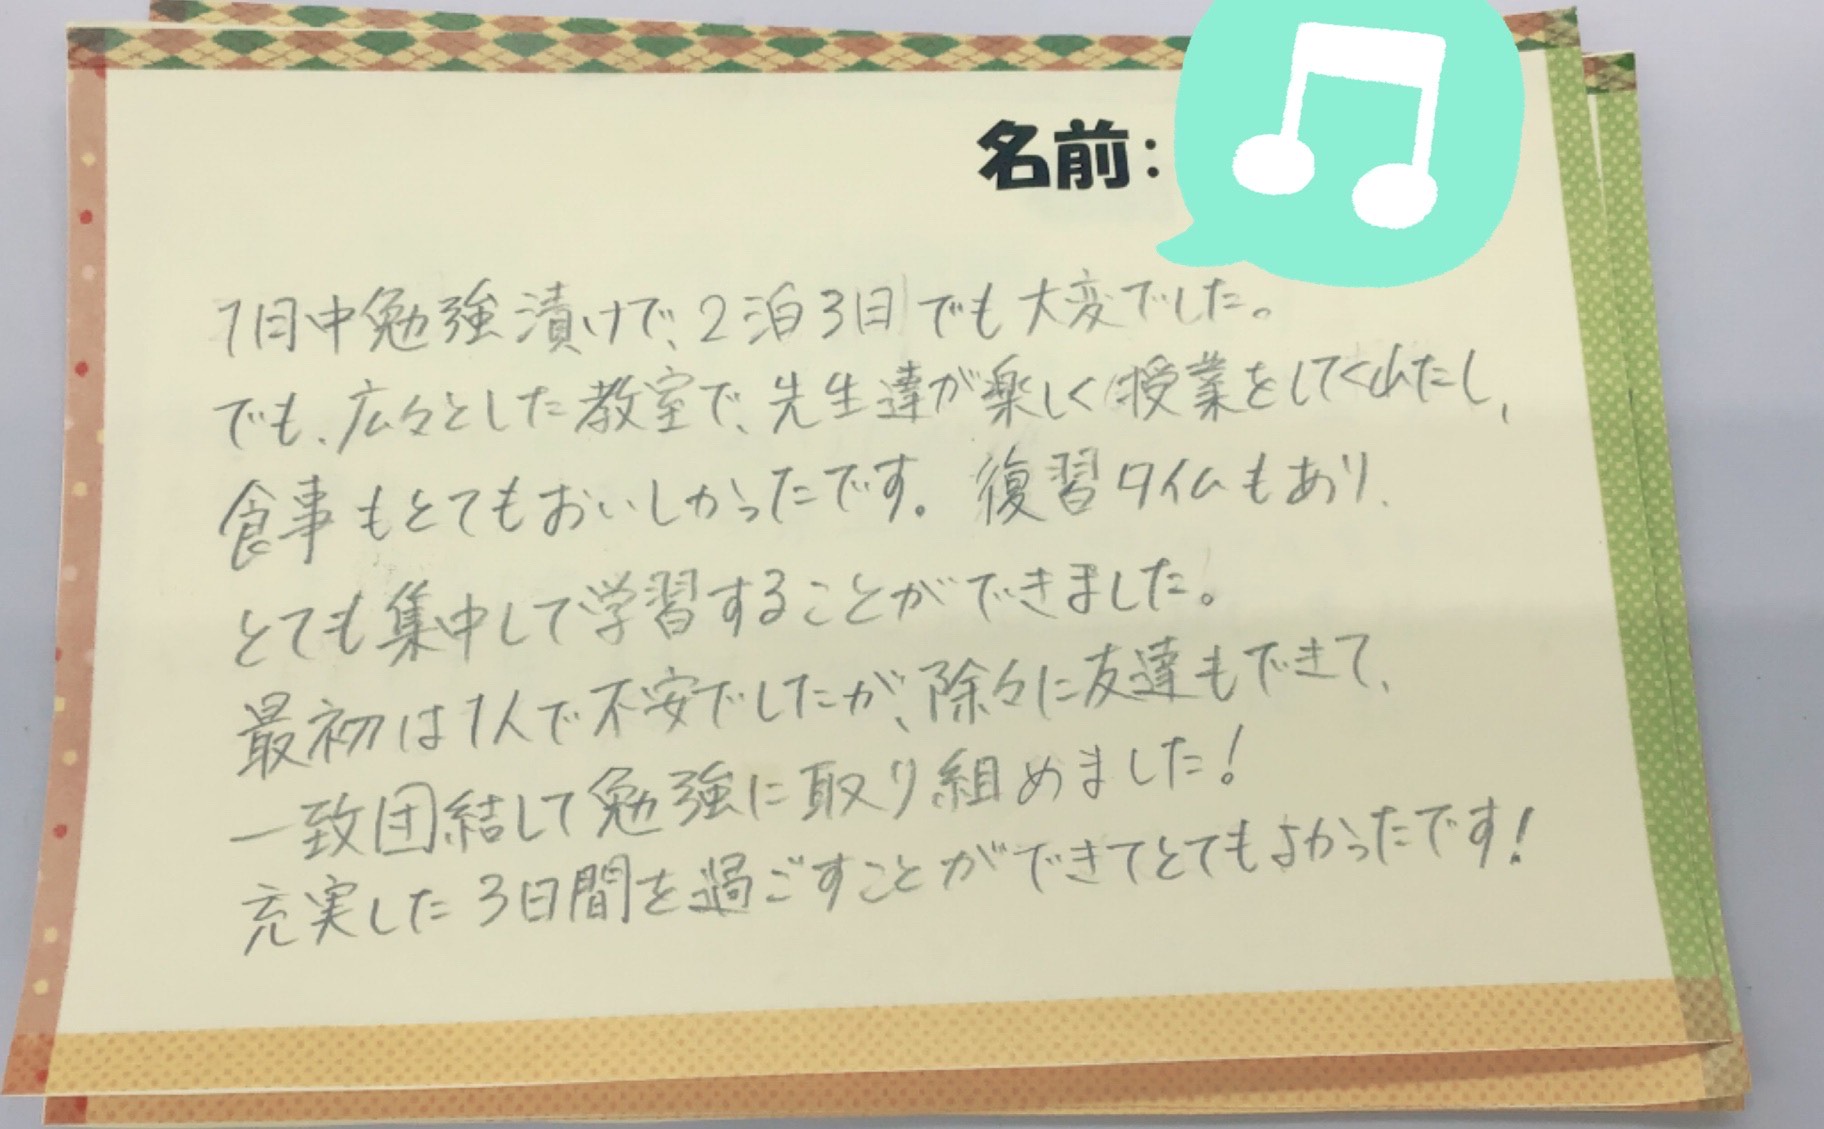 名前:
1日中勉強漬けで、2泊3日でも大変でした。
でも、広々とした教室で、先生達が楽しく授業をしてくれたし、
食事もとてもおいしかったです。復習タイムもあり、
とても集中して学習することができました。
最初は1人で不安でしたが、除々に友達もできて、
一致団結して勉強に取り組めました!
充実した3日間を過ごすことができてとてもよかったです!